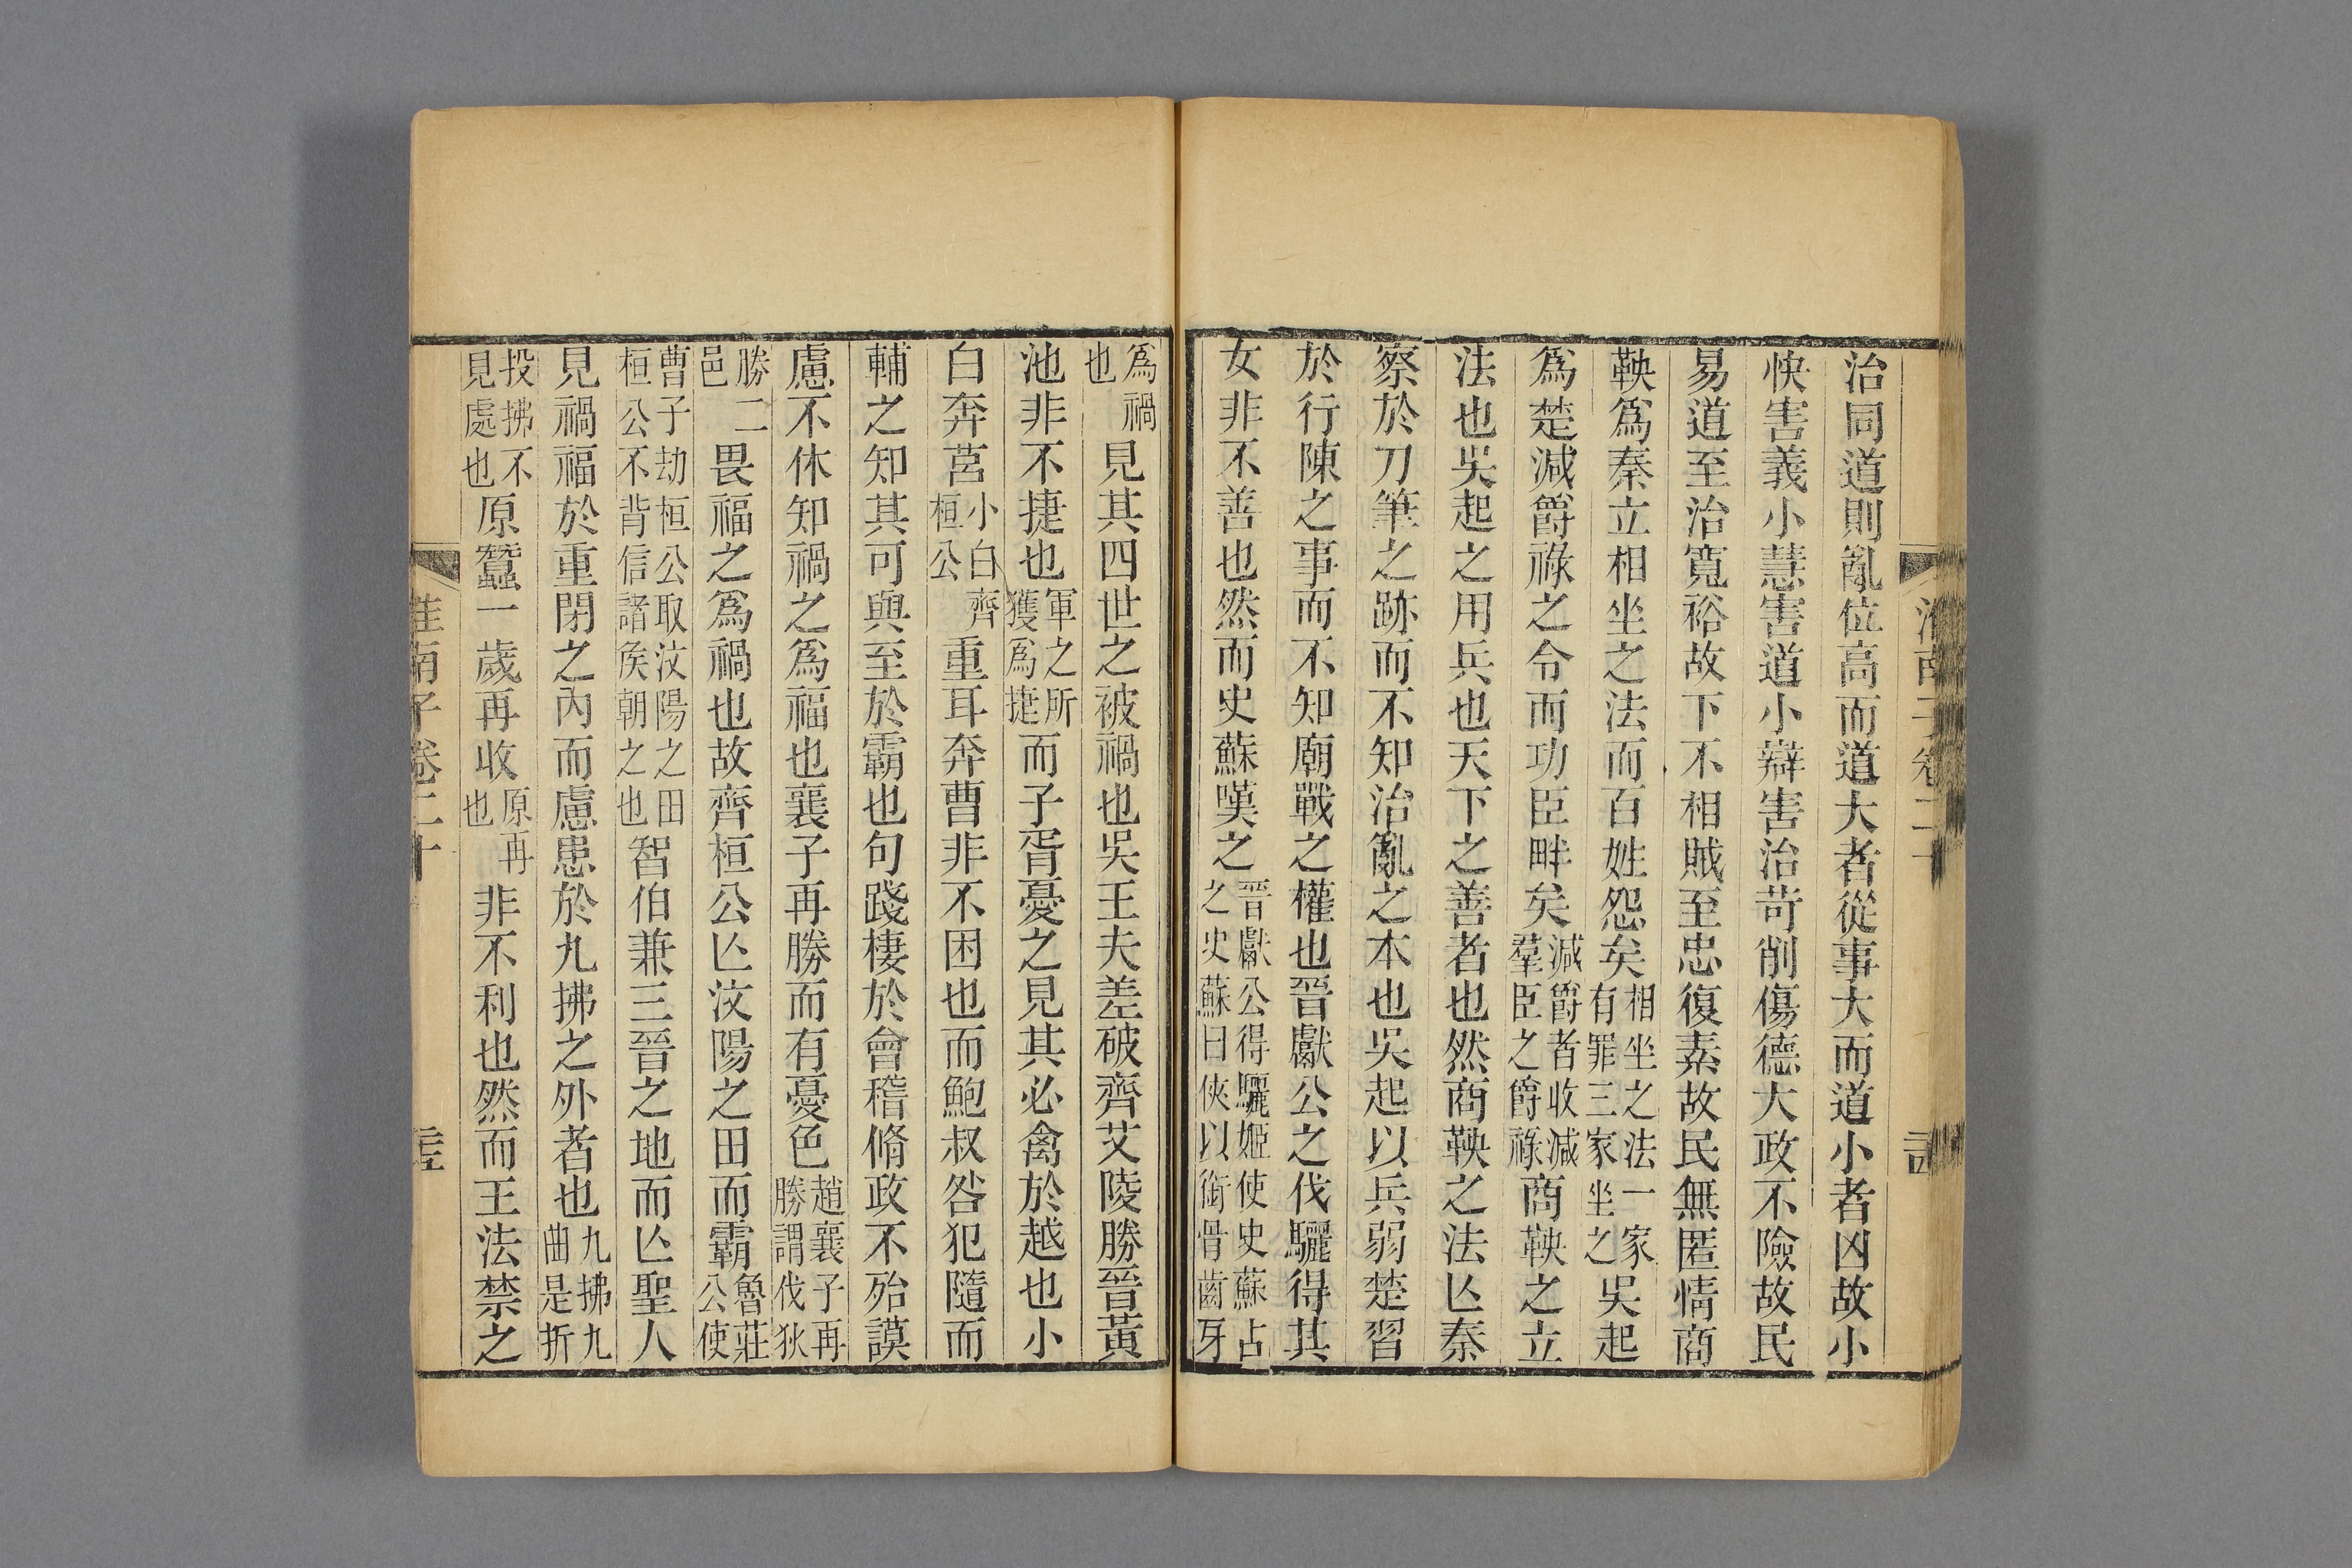 淮南子卷二十
治同道則亂位高而道大者從事大而道小者凶故小
快害義小慧害道小辯害治苛削傷德大政不險故民
易道至治寬裕故下不相賊至忠復素故民無匿情商
鞅爲秦立相坐之法而百姓怨矣相坐之法一家有罪三家坐之吳起
爲楚減爵祿之令而功臣畔矣減爵者收減羣臣之爵祿商鞅之立
法也吳起之用兵也天下之善者也然商鞅之法亾秦
察於刀筆之跡而不知治亂之本也吳起以兵弱楚習
於行陳之事而不知廟戰之權也晉獻公之伐驪得其
女非不善也然而史蘇嘆之晉獻公得驪姬使史蘇占之史蘇曰俠以銜骨齒牙
爲禍也見其四世之被禍也吳王夫差破齊艾陵勝晉黃
池非不捷也軍之所獲爲捷而子胥憂之見其必禽於越也小
白奔莒小白齊桓公重耳奔曹非不困也而鮑叔咎犯隨而
輔之知其可與至於霸也句踐棲於會稽脩政不殆謨
慮不休知禍之爲福也襄子再勝而有憂色趙襄子再勝謂伐狄
勝二邑畏福之爲禍也故齊桓公亾汶陽之田而霸魯莊公使
曹子劫桓公取汶陽之田桓公不背信諸矦朝之也智伯兼三晉之地而亾聖人
見禍福於重閉之內而慮患於九拂之外者也九拂九曲是折
投拂不見處也原蠶一歲再收原再也非不利也然而王法禁之
淮南子卷二十